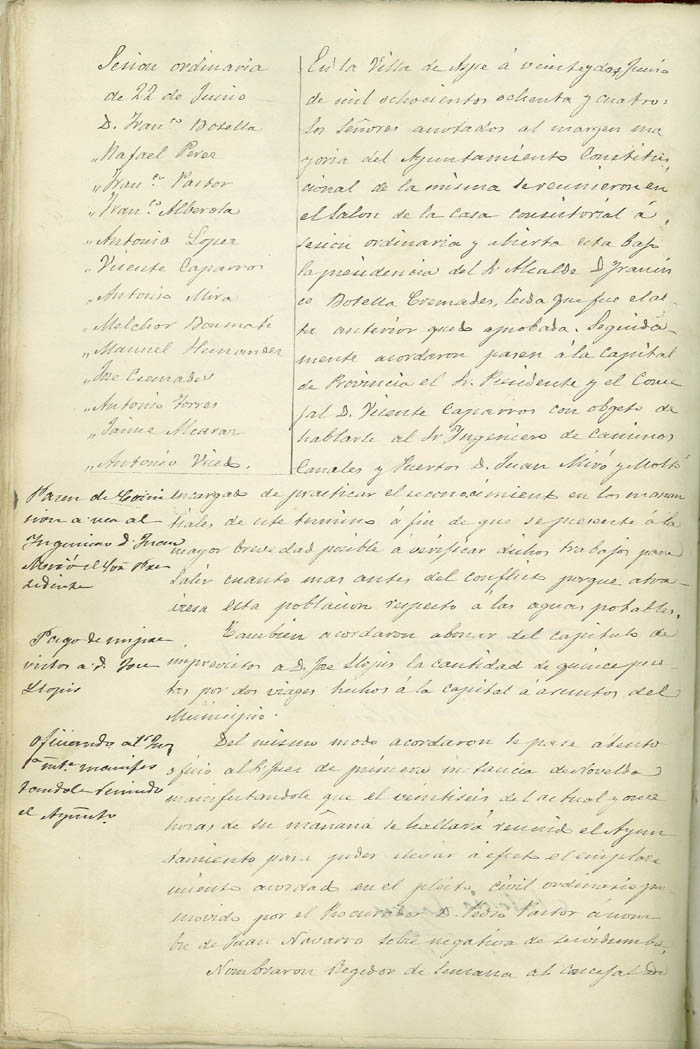 Sesion ordinaria
de 22 de Junio
D. Fran.co Botella
" Rafael Perez
" Fran.co Pastor
" Fran.co Alberola
" Antonio Lopez
" Vicente Caparros
" Antonio Mira
" Melchor
" Manuel Hernandez
" Jose Cremades
" Antonio Torres
" Jaime Alcaraz
" Antonio Vicedo.
En la Villa de Aspe á veinte y dos Junio
de mil ochocientos ochenta y cuatro:
los Señores anotados al margen ma
yoria del Ayuntamiento Constitu
cional de la misma se reunieron en
el Salon de la casa consistorial á
sesion ordinaria y abierta esta bajo
la presidencia del Sr Alcalde D Francis
co Botella Cremades, leida que fue el ac
ta anterior quedo aprobada. Seguida
mente acordaron pasen á la Capital
de Provincia el Sr. Presidente y el Conce
jal D. Vicente Caparros con objeto de
hablarle al Sr Ingeniero de Caminos
Canales y Puertos D. Juan Miró y Moltó
encargado de practicar el reconocimiento en los manan
tiales de este termino á fin de que se presente á la
mayor brevedad posible á verificar dichos trabajos para
salir cuanto mas antes del conflicto porque atra
viesa esta poblacion respecto á las aguas potables.
Tambien acordaron abonar del capitulo de
imprevistos a D. Jose Llopis la cantidad de quince pese
tas por dos viages hechos á la capital á asuntos del
Municipio.
Del mismo modo acordaron se pase atento
oficio al Sr Juez de primera instancia de Novelda
manifestandole que el veintiseis del actual y once
horas de su mañana se hallará reunido el Ayun
tamiento para poder llevar á efecto el emplaza
miento acordado en el pleito civil ordinario pro
movido por el Procurador D. Pedro Pastor á nom
bre de Juan Navarro sobre negativa de servidumbre.
Nombraron Regidor de Semana al concejal Dn
Pasen de Comi
sion a ver al
Ingeniero D. Juan
Miró el Sor Pre
sidente
Pago de impre
vistos a D. Jose
Llopis
oficiando al Sr Juez
manifes
tandole reunido
el Ayunto.